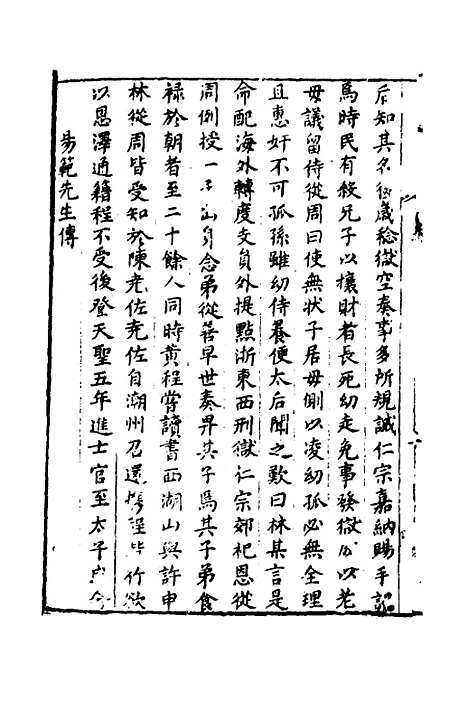 后知其名後歲稔獄空奏事多所規誠仁宗嘉納賜手詔
焉時民有殺兄子以攘財者長死幼走免事發獄以老
母議留侍從周曰使無状子居母側以凌幼孤必無全理
且惠奸不可孤孫雖幼侍養便太后聞之歎曰林某言是
命配海外轉度支員外提點浙東西刑獄仁宗郊祀恩從
周例授一子出身念弟從善早世奏畀其子焉其子弟食
祿於朝者至二十餘人同時黄程嘗讀書西湖山與許申
林從周皆受知於陳尭佐尭佐自潮州召還携程與竹欲
以恩澤通籍程不受後登天聖五年進士官至太子中舍
昜範先生傳